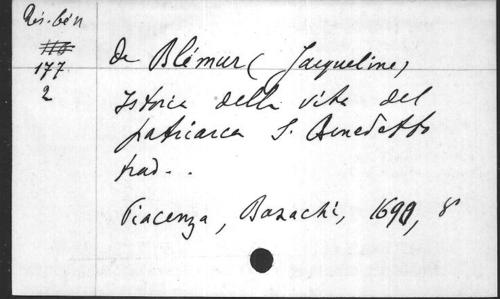 Rés. bén
116
177
2
de Blémur (Jacqueline)
Istoria della vita del
patriarca S. Benedetto
trad..
Piacenza, Bazachi, 1699, 8°